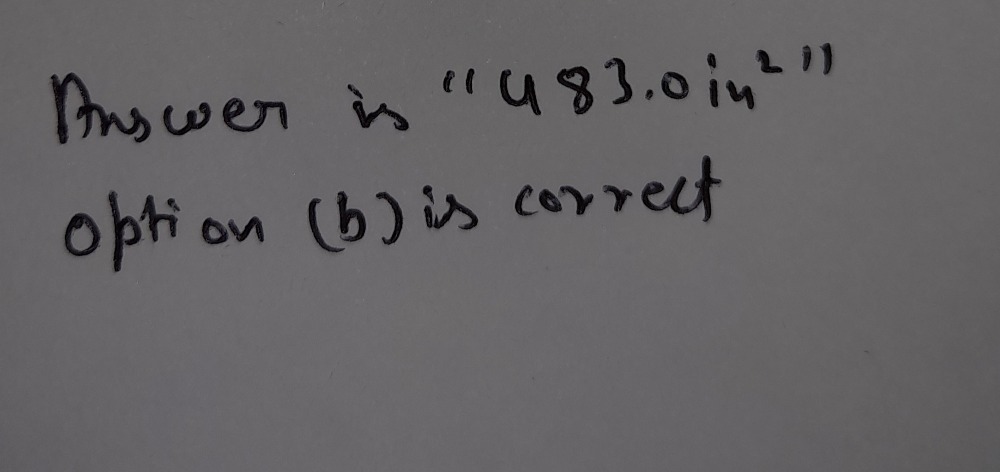 Answer is "483.0in²"
option (b) is correct